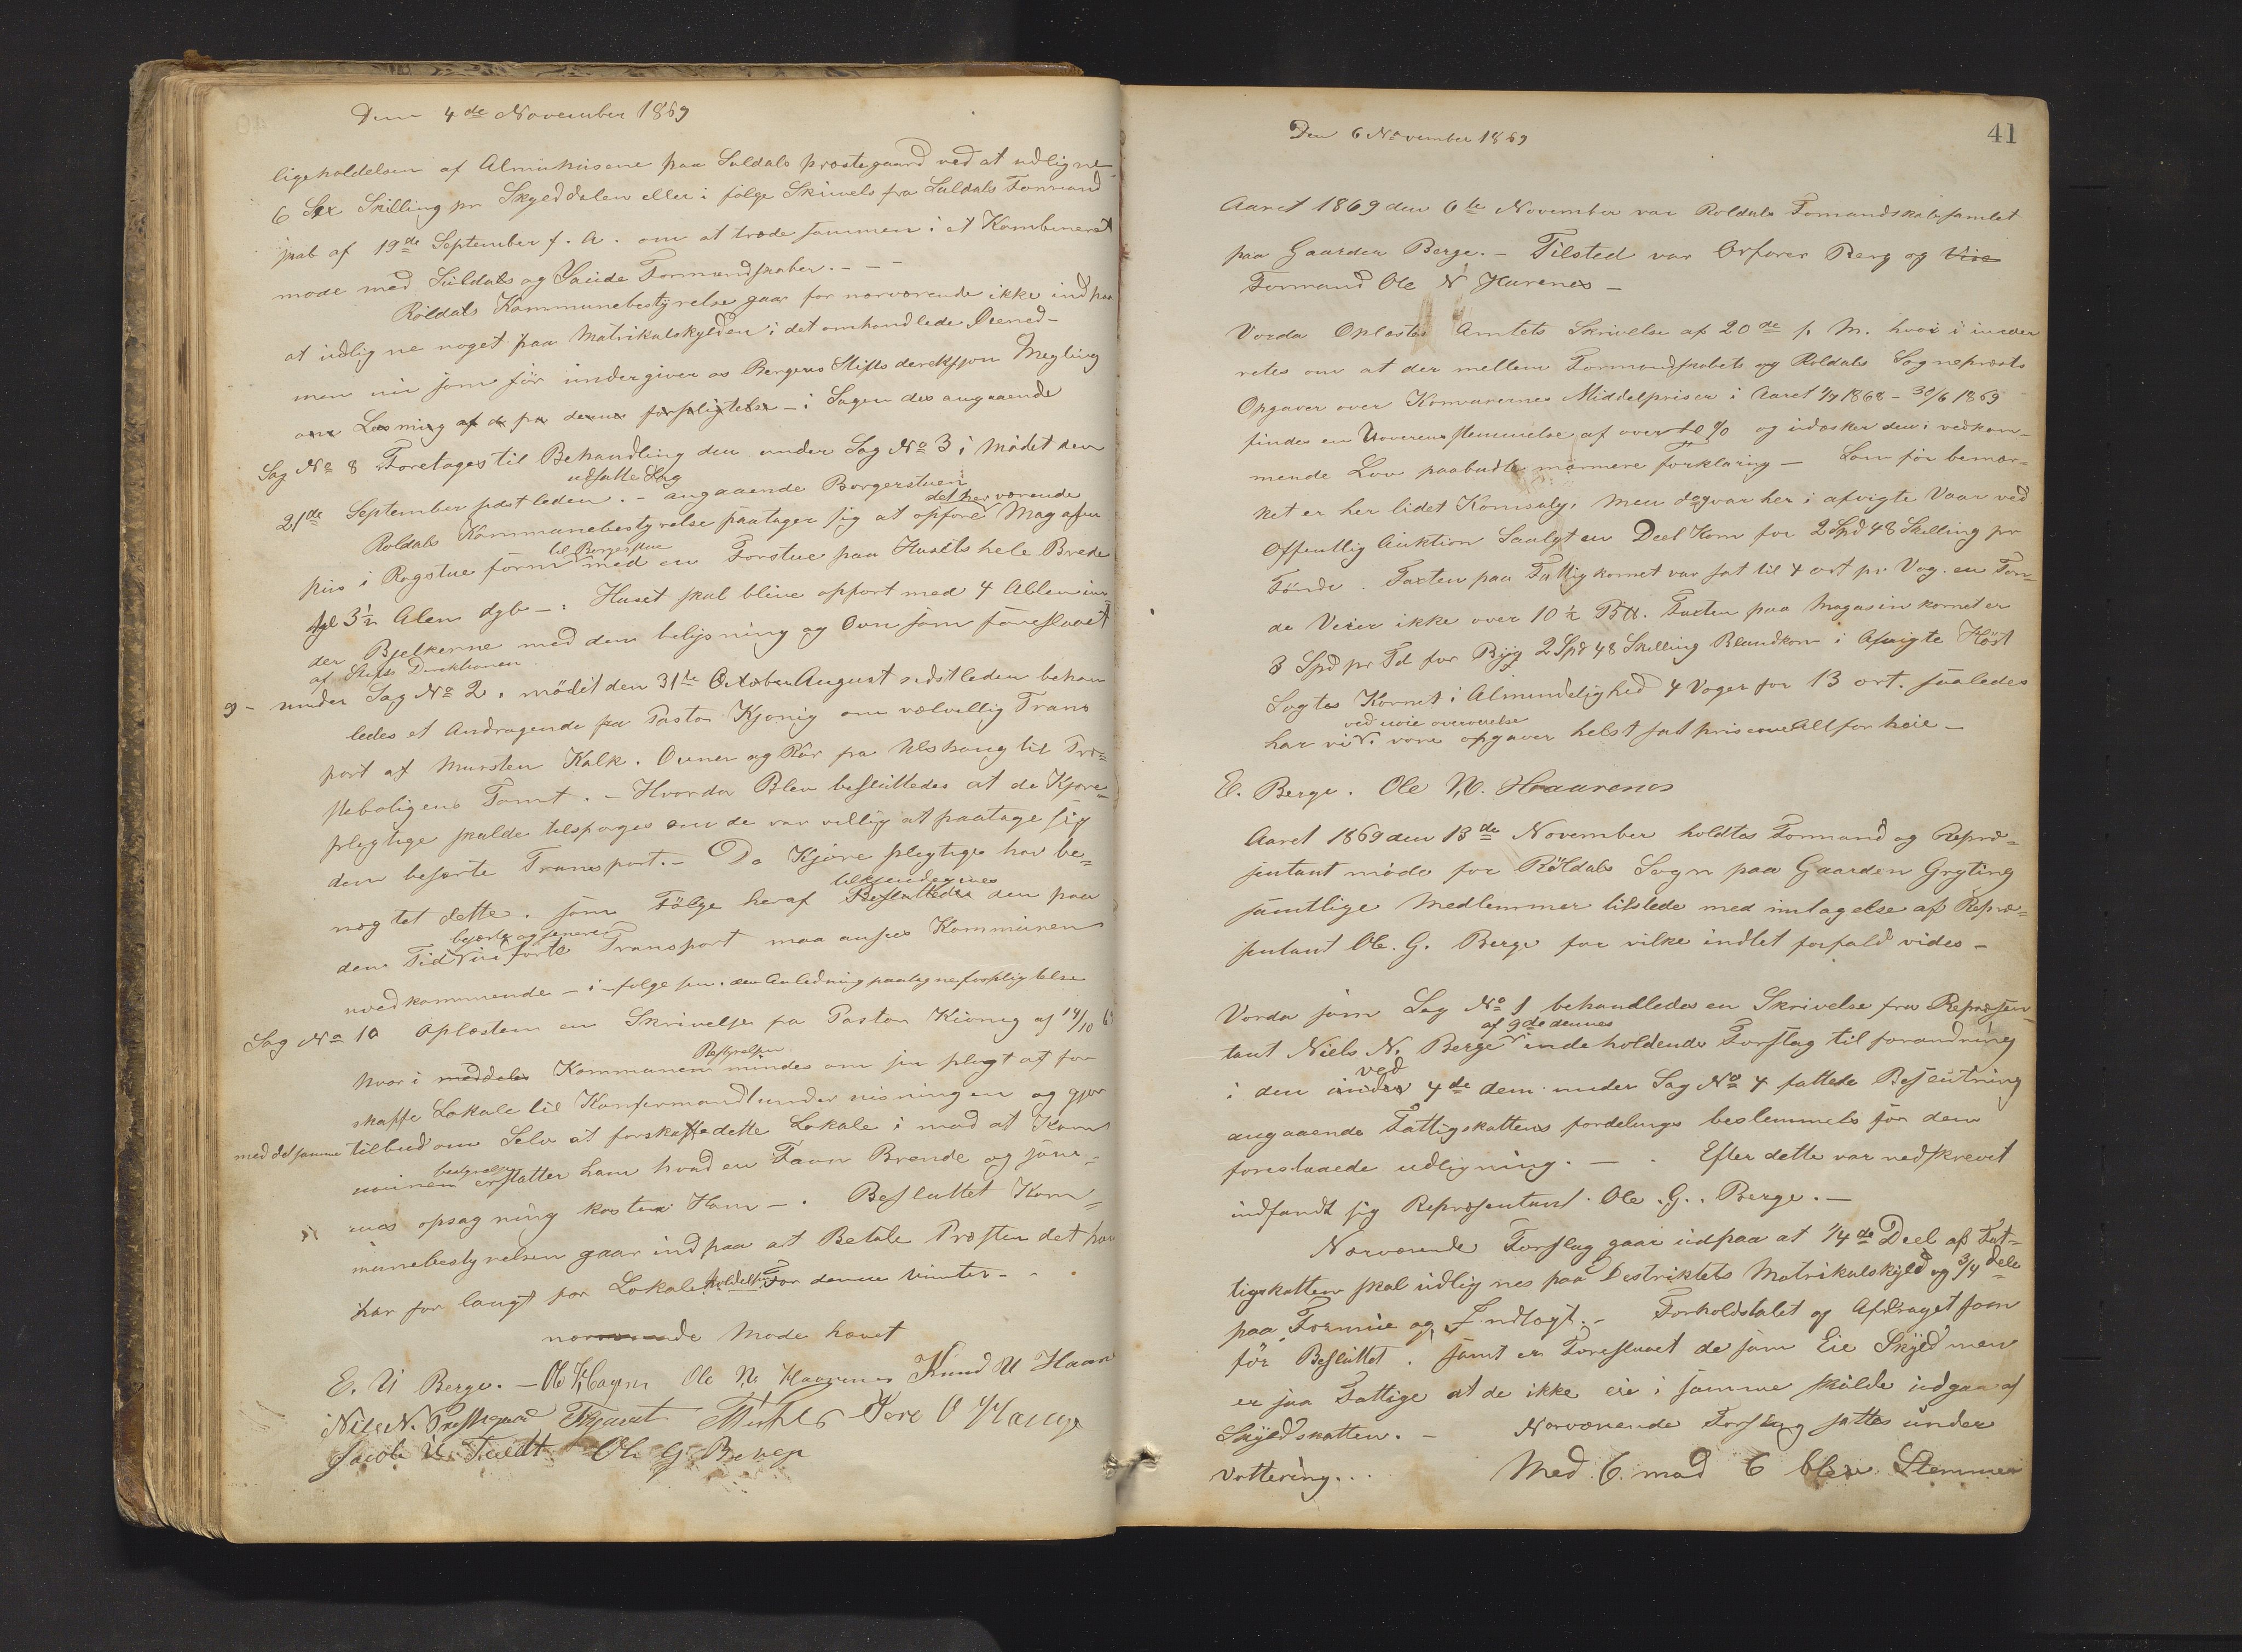 Den 4de November 1869
ligeholdelsen af Almuhusene paa Suldals prestegaard ved at udligne
6 Sex Skilling pr Skylddalen eller i følge Skrivels fra Suldals Formand
skab af 19de September f. A. om at træde sammen i et Kombineret
møde med Suldals og Saude Formandskaber. - - -
Röldals Kommunebestyrelse gaar for nærværende ikke ind paa
at udligne noget paa Matrikulskylden i det omhandlede Øiened-
men nu som før undergiver os Bergens Stifts dereksjon Megling
i Sagen des angaaende
Sag No 8 Foretages til Behandling den under Sag No 3 i Mødet den
udsatte Sag
21de September sidst leden. - angaaende Borgerstuen
det her værende
Roldals Kommunebestyrelse paatager sig at opføre Magasin
til Borgerstue
hus i Røgstue form med en Forstue paa Husets hele Brede
3½ Alen dyb -. Huset skal blive opført med 4 Allen un-
der Bjelkerne med den belysning og Ovn som foreslaaet
af Stifts Direktionen
9 - under Sag No 2. mödet den 31te October August sidst leden behan
ledes et Andragende fra Pastor Kjønig om velvillig Trans
port af Mursten Kalk. Ovner og Rör fra Ulshaug til Præ-
steboligens Tomt. - Hvorda Blev besluttedes at de Kjøre-
plegtige skulde tilspørges om de var villig at paatage sig
den besørte Transport. - Da Kjøre plegtige har be-
tilkjendegives
nægtet dette. som Følge heraf Besluttedes den paa
besørte og senere
den Tid førte Transport maa ansees Kommunen
uvedkommende - i følge sin. den Anledning paategne forpligtelse
Sag No 10 Oplæstem en Skrivelse fra Pastor Kiønig af 14/10 69
Bestyrelsen
hvor i meddeles Kommunen mindes om sin plegt at for
skaffe Lokale til Konfermandtundervisningen og gjør
med det samme tilbud om Selv at forskaffe dette Lokale i mod at Kom
bestyrelse
munen erstatter ham hvad en Favn Brende og sam-
mes opsagning koster Ham -. Besluttet Kom-
munebestyrelsen gaar ind paa at Betale Præsten det han
har for langt for Lokale holdelse For denne Vinter - .
nærværende Møde hævet
E. U Berge. - Ole Hagen Ole N. Haarenes Knud U Haan
Niels N. Prestegaard Jore O Hauge
Jacob U. Tvedt Ole G. Berge
41
Den 6 November 1869
Aaret 1869 den 6te November var Roldals Formandskab samlet
paa Gaarden Berge. - Tilsted var Orfører Berg og Vise
Formand Ole N Harenes -
Vorda Oplæstes Amtets Skrivelse af 20de f. M. hvor i
retes om at der mellem Formandskabets og Roldals Sogneprests
Opgaver over Kornvarernes Middelpriser i Aaret 1/7 1868 - 30/6 1869
findes en Uoverensstemmelse af over 10 % og udæsker den i vedkom-
mende Lov paabudte nærmere Forklaring - Som før bemær-
ket er her lidet Kornsalg, Men dog var her i afvigte Vaar ved
Offentlig Auktion Saalgt en Deel Korn for 2 Spd 48 Skilling pr
Tønde. Taxten paa Fattigkornet var sat til 4 ort pr. Vog. en Ton-
de Veier ikke over 10 ½ B℔. Taxten paa Magasin kornet er
3 Spd pr Td for Byg 2 Spd 48 Skilling Blandkorn i Afvigte Høst
Sogtes Kornet i Almindelighed 4 Voger for 13 ort. saaledes
ved nøie overveielse
har vi i vore opgaver helst sat priserne Allfor høie -
E. Berge. Ole N. Haarenes
Aaret 1869 den 13de November holdtes Formand og Repræ-
sentant møde for Röldals Sogn paa Gaarden Gryting
samtlige Medlemmer tilstede med indtagelse af Repræ-
sentant Ole. G. Berge for vilke indlet forfald vides -
Vorda som Sag No 1 behandledes en Skrivelse fra Repræsen-
af 9de dennes
tant Niels N. Berge indeholdende Forslag til forandring
ved
i den under 4de dem under Sag No 4 fattede Beslutning
angaaende Fattigskattens fordelings bestemmels for den
foreslaaede udligning. - . Efter dette var nedskrevet
indfandt sig Representant. Ole. G. Berge. -
Nærværende Forslag gaar ud paa at 1/4de Deel af Fat-
tigskatten skal udlignes paa Destriktets Matrikulskyld og 3/4 dele
paa Formue og Indtægt. - Forholdstalet og Afdraget som
før Besluttet. samt er Foreslaaet de som Eie Skyld men
er saa Fattige at de ikke eie i samme skulde udgaa af
Skyldskatten. - Nærværende Forslag sattes under
Vottering. . . Med 6 mod 6 blev Stemmer